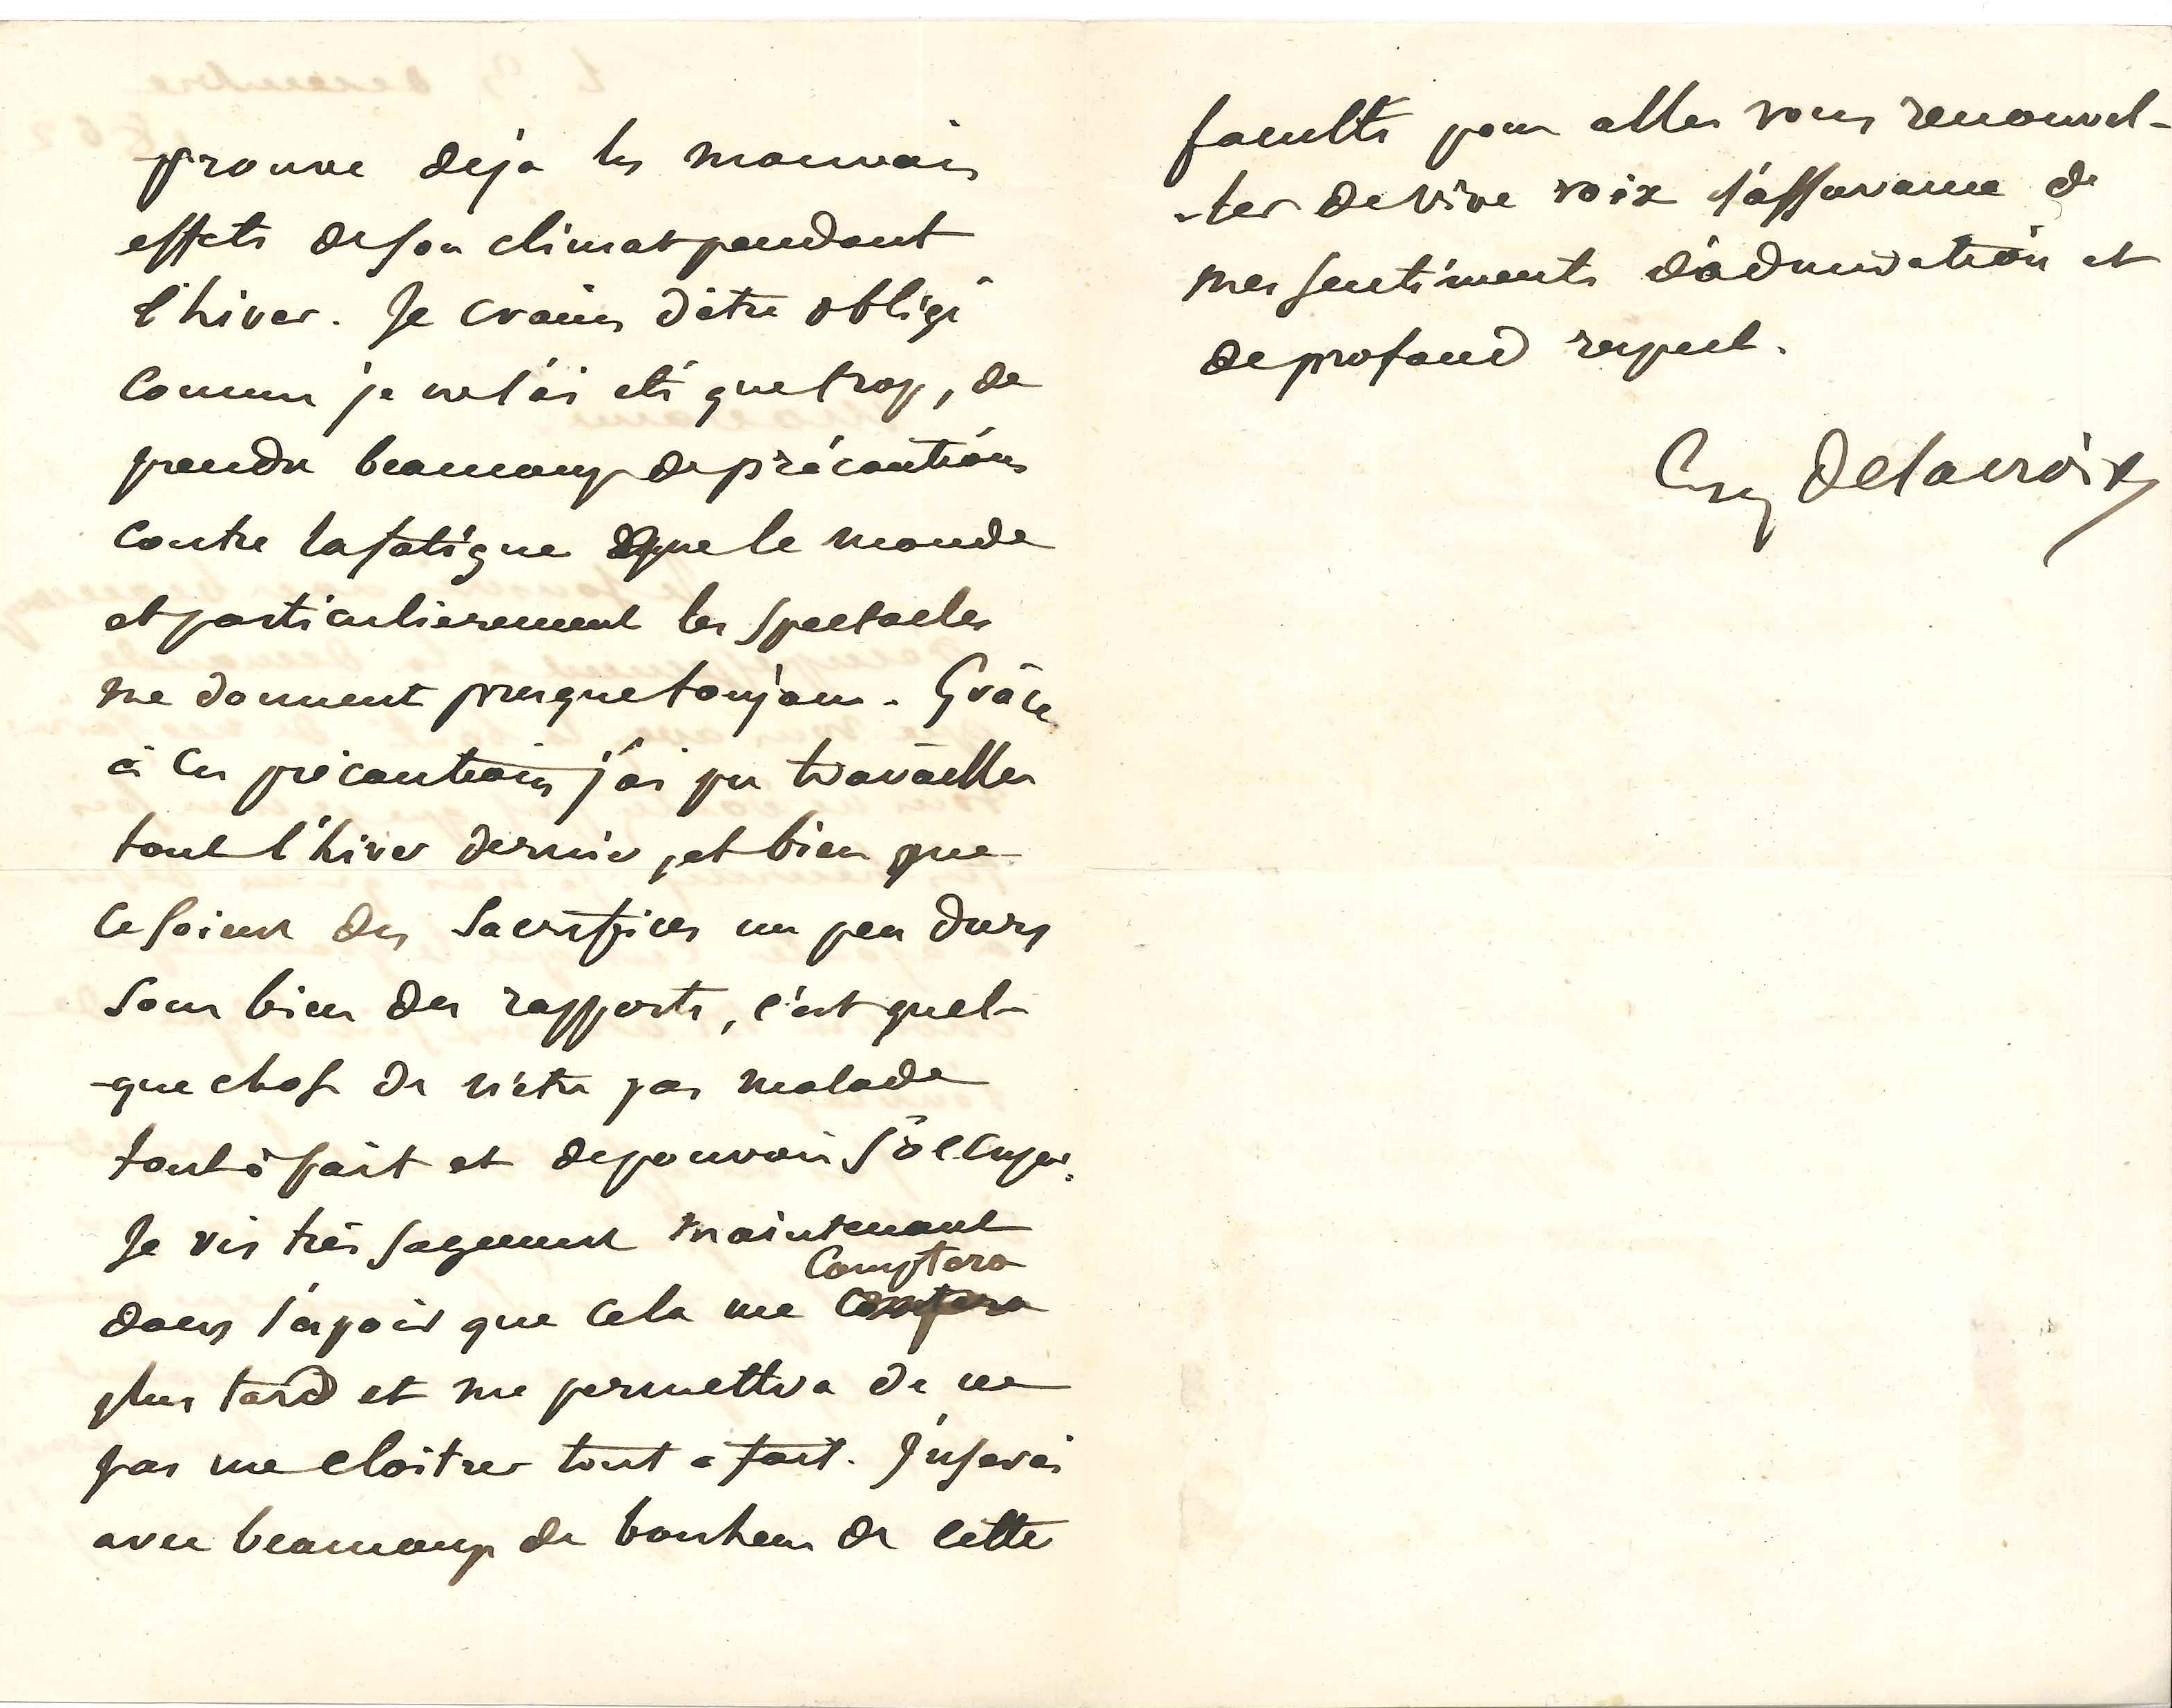 prouve deja les mauvais
effets de son climat pendant
l'hiver. Je crains d'etre obligé
comme je ne l'ai été que trop, de
prendre beaucoup de précautions
contre la fatigue que le monde
et particulierement les spectacles
me donnent presque toujours. Grâce
à ces précautions j'ai pu travailler
tout l'hiver dernier, et bien que
ce soient des sacrifices un peu durs
sous bien des rapports, c'est quel-
-que chose de n'être pas malade
tout à fait et de pouvoir s'occuper.
Je vis très sagement maintenant
comptera
dans l'espoir que cela me
plus tard et me permettra de ne
pas me cloitrer tout a fait. J'userai
avec beaucoup de bonheur de cette
faculté pour aller vous renouvel-
-ler de vive voix l'assurance de
mes sentiments d'admiration et
de profond respect.
Eug Delacroix